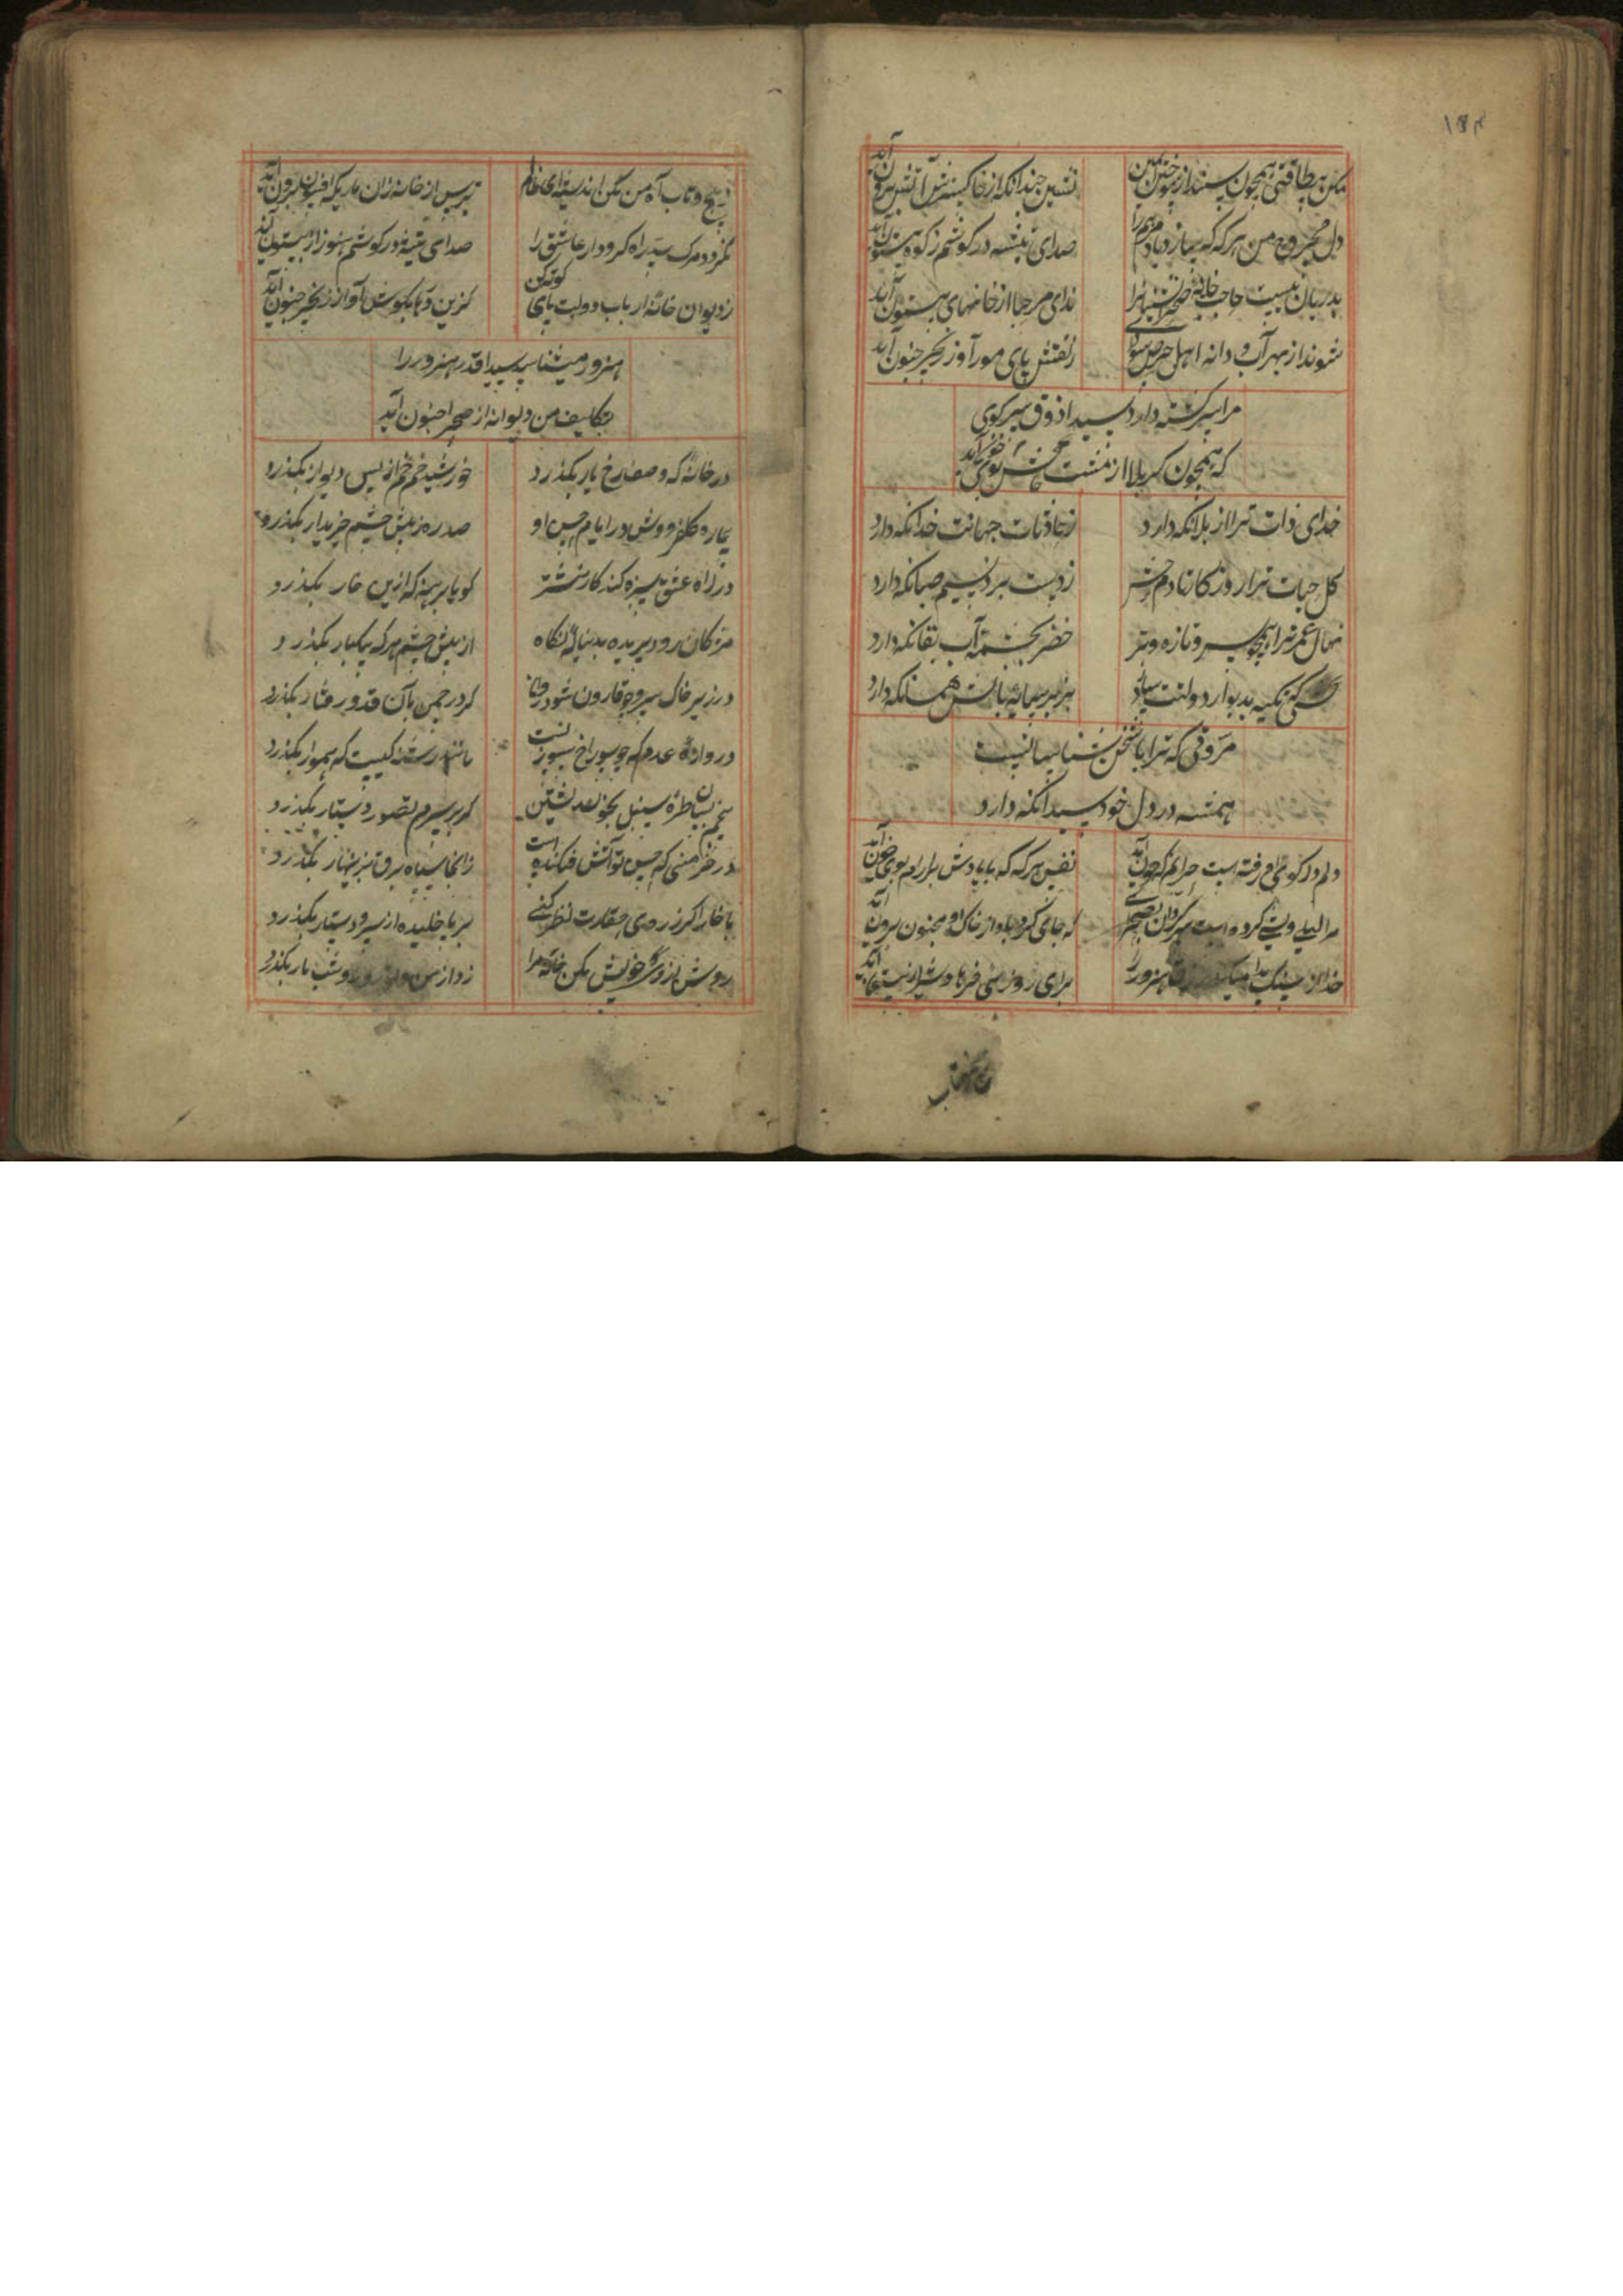 ۱۵۴
مکن بیطاقتی همچون سپند از سوختن
نشین چندانکه از خاکسترش آتش برون آید
دل مجروح من هر که که یاد مرهم را
صدای تیشه در گوشم ز کوه بیستون آید
بدربان نیست حاجت خانه
ندای مرحبا از خانهای بیستون آید
شوند از بهر آب و دانه اهل حرص
ز نقش پای مور آواز زنجیر جنون آید
مرا سرگشته دارد سیدا ذوق سر کوی
که همچون کربلا از مشت خاکش بوی خون آید
خدای ذات ترا از بلا نکه دارد
ز حادثات جهانت خدا نکه دارد
کل حیات ترا روزکار تا دم حشر
ز دست برد نسیم صبا نکه دارد
نهال عمر ترا همچو سرو تازه و تر
خضر بچشمه آب بقا نکه دارد
کسی که تکیه بدیوار دولتت سازد
بزیر سایه بالش هما نکه دارد
مروتی که ترا با سخن شناسان نیست
همیشه در دل خود سیدا نکه دارد
دلم در کوی او رفته است حیرانم که چون آید
نفس هر که که با یادش برارم بوی خون آید
مرا لیلی وشی کردواست سرکردان بصحرای
که جای کردباد از خاک او مجنون برون آید
خدا از سنک پیدا میکند رزق هنرور را
برای روزی فرهاد شیر از بیستون آید
ز پیچ و تاب آه من مکن اندیشه ای ظالم
بترس از خانه زان ماریکه افسون برون آید
نکردد مرک سد راه کرودار عاشق را
صدای تیشه در کوشم هنوز از بیستون آید
ز دیوان خانه ارباب دولت پای کوته کن
کزین در ها بکوش آواز زنجیر جنون آید
هنرور میشناسد سیدا قدر هنرور را
بتکلیف من دیوانه از صحرا جنون آید
در خانه که وصف رخ یار بکذرد
خورشید خم خم از پس دیوار بکذرد
در ایام حسن او
صد ره ز پیش چشم خریدار بکذرد
در راه عشق سبزه کند کار نشتر
کو پا برهنه که ازین خار بکذرد
مژکان رود پریده بدنباله نکاه
از پیش چشم هر که یکبار بکذرد
در زیر خاک سرو چو قارون شود روان
کر در چمن بآن قد و رفتار بکذرد
دروازه عدم که چو سوراخ سوزنست
مانند رشته کیست که هموار بکذرد
پیچم بسان طره سنبل بخون نشین
کر بر سرم تصور دستار بکذرد
در خرمنی که حسن تو آتش فکنده است
زانجا سیاه برق بزنهار بکذرد
با خار اکر ز روی حقارت نظر کنی
بر پا خلیده از سر و دستار بکذرد
روشن ز روی خویش بکن خانه مرا
زود از من و روز و شب تار بکذرد